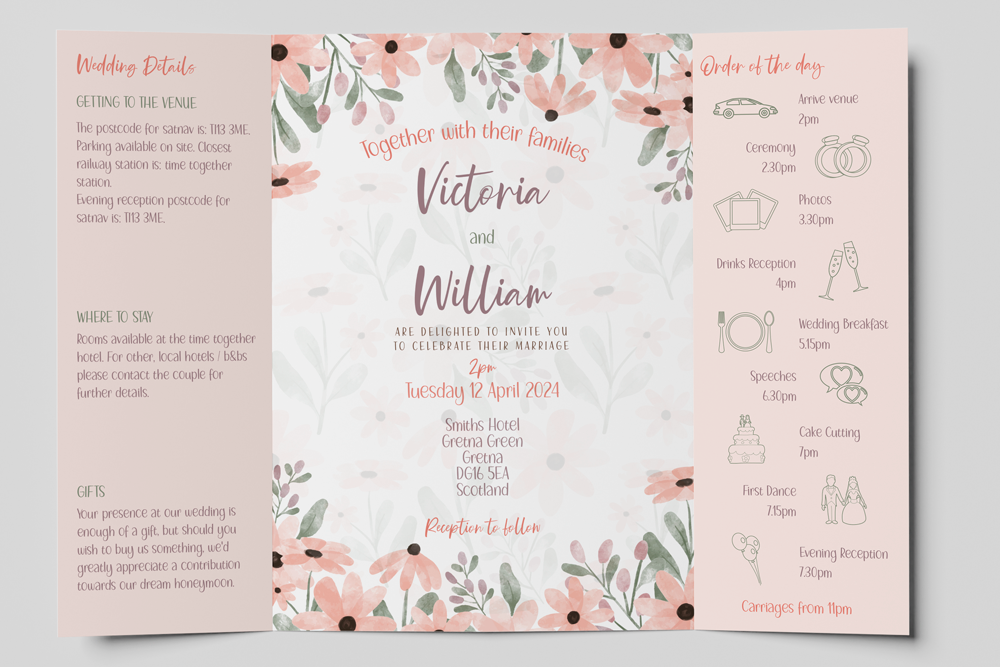 Wedding Details
GETTING TO THE VENUE
The postcode for satnav is: T113 3ME.
Parking available on site. Closest
railway station is: time together
station.
Evening reception postcode for
satnav is: T113 3ME.
WHERE TO STAY
Rooms available at the time together
hotel. For other, local hotels / b&bs
please contact the couple for
further details.
GIFTS
Your presence at our wedding is
enough of a gift, but should you
wish to buy us something, we'd
greatly appreciate a contribution
towards our dream honeymoon.
Together with their families
Victoria
and
William
ARE DELIGHTED TO INVITE YOU
TO CELEBRATE THEIR MARRIAGE
2pm
Tuesday 12 April 2024
Smiths Hotel
Gretna Green
Gretna
DG16 5EA
Scotland
Reception to follow
Order of the day
Arrive venue
2pm
Ceremony
2.30pm
Photos
3.30pm
Drinks Reception
4pm
Wedding Breakfast
5.15pm
Speeches
6.30pm
Cake Cutting
7pm
First Dance
7.15pm
Evening Reception
7.30pm
Carriages from 11pm